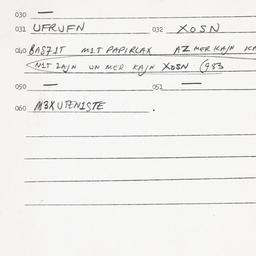 030 —
031 UFRUFN 032 XOSN
040 BAS71T M1T PAPIRLAX AZ MER KAJN KA
N1T ZAJN UN MER KAJN XOSN (983
050 — 051 —
060 M3XUTEN1STE .